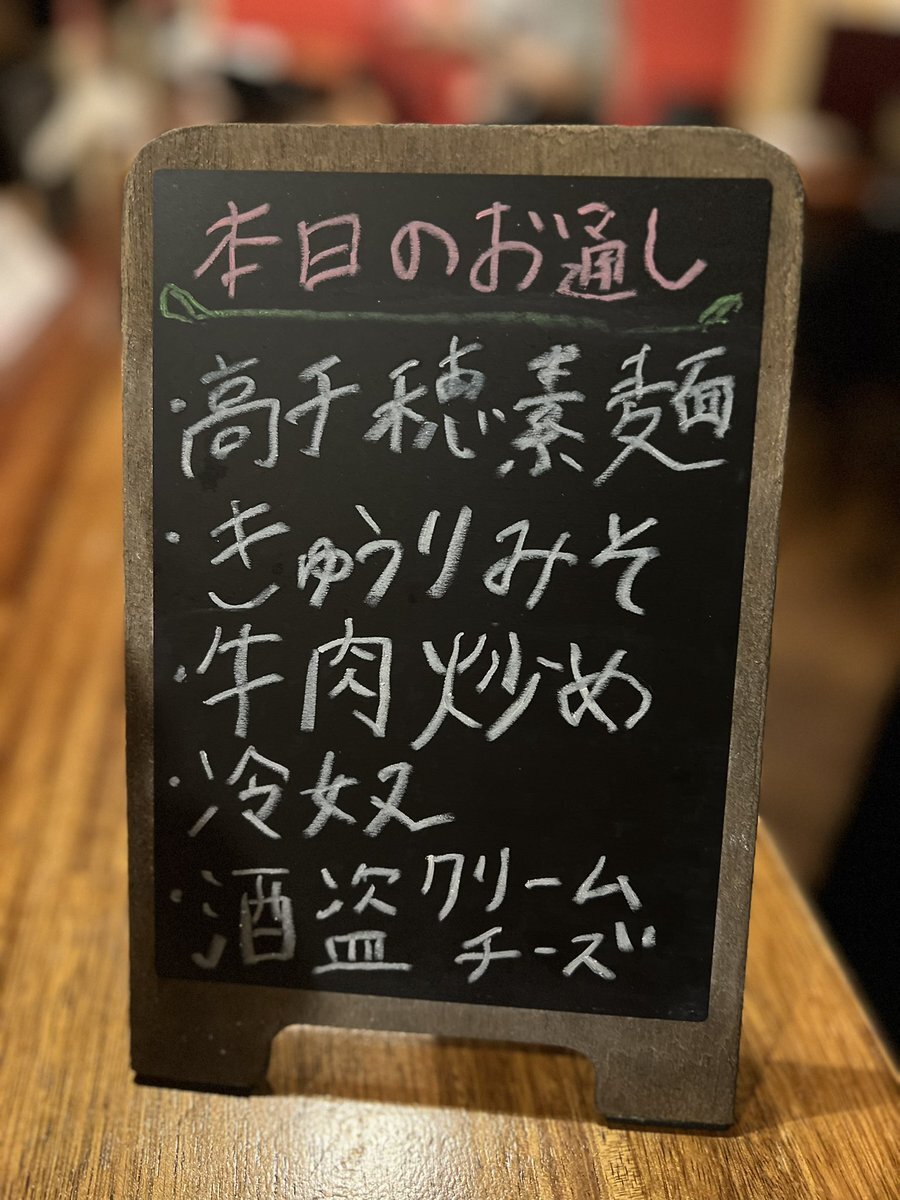 本日のお通し
・高千穂素麺
・きゅうりみそ
・牛肉炒め
・冷奴
・酒盗クリーム
チーズ